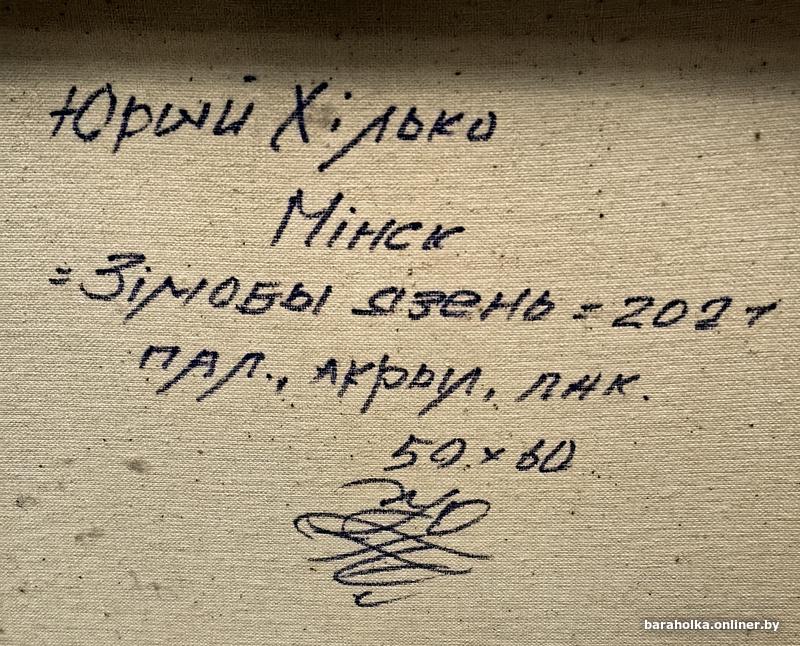 Юрый Хілько
Мінск
= Зімовы дзень =
пал., акрыл, лак.
50 x 60
baraholka.onliner.by